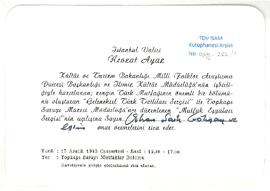 TDV İSAM
Kütüphanesi Arşivi
No
İstanbul Valisi
Nevzat Ayaz
Kültür ve Turizm Bakanlığı, Milli Folklor Araştırma
Dairesi Başkanlığı ve İzmir Kültür Müdürlüğü'nün işbirli-
ğiyle hazırlanan; zengin Türk Mutfağının önemli bir bölümü-
nü oluşturan "Geleneksel Türk Tatlıları Sergisi" ile Topkapı
Sarayı Müzesi Müdürlüğü'nce düzenlenen "Mutfak Eşyaları
Sergisi"nin açılışına Sayın. Orhan Şaik Gökyay ve
eşinin onur vermelerini rica eder.
Tarih : 17 Aralık 1983 Cumartesi - Saat :
Yer : Topkapı Sarayı Mutfaklar Bölümü